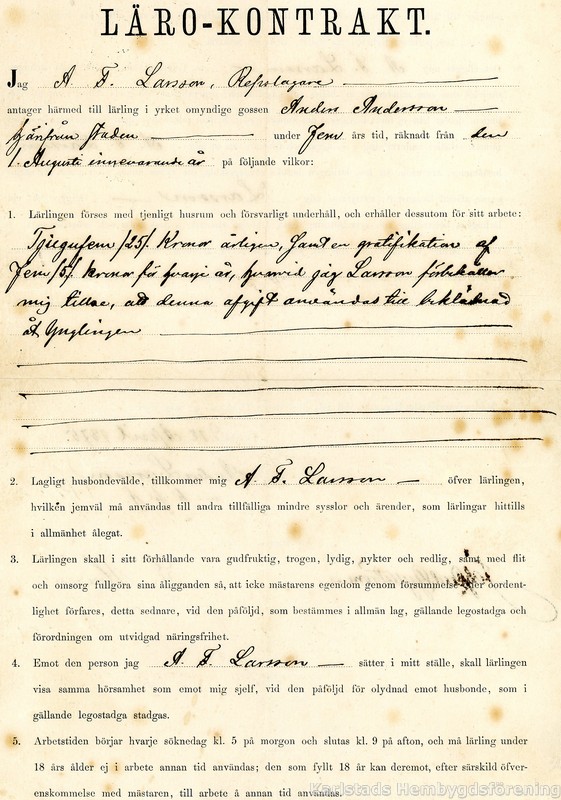 LÄRO-KONTRAKT.
Jag A. F. Larsson, Repslagare
antager härmed till lärling i yrket omyndige gossen Anders Andersson
härifrån staden under fem års tid, räknadt från den
1. Augusti innevarande år på följande vilkor:
1. Lärlingen förses med tjenligt husrum och försvarligt underhåll, och erhåller dessutom för sitt arbete:
Tjugufem /25/. Kronor årligen, samt en gratifikation af
Fem /5/. kronor för hvarje år, hvarvid jag Larsson förbehåller
mig tillse, att denna afgift användas till beklädnad
åt Ynglingen
2. Lagligt husbondevälde, tillkommer mig A. F. Larsson öfver lärlingen,
hvilken jemväl må användas till andra tillfälliga mindre sysslor och ärender, som lärlingar hittills
i allmänhet ålegat.
3. Lärlingen skall i sitt förhållande vara gudfruktig, trogen, lydig, nykter och redlig, samt med flit
och omsorg fullgöra sina åligganden så, att icke mästarens egendom genom försummelse eller oordent-
lighet förfares, detta sednare, vid den påföljd, som bestämmes i allmän lag, gällande legostadga och
förordningen om utvidgad näringsfrihet.
4. Emot den person jag A. F. Larsson sätter i mitt ställe, skall lärlingen
visa samma hörsamhet som emot mig sjelf, vid den påföljd för olydnad emot husbonde, som i
gällande legostadga stadgas.
5. Arbetstiden börjar hvarje söknedag kl. 5 på morgon och slutas kl. 9 på afton, och må lärling under
18 års ålder ej i arbete annan tid användas; den som fyllt 18 år kan deremot, efter särskild öfver-
enskommelse med mästaren, till arbete å annan tid användas.
Karlstads Hembygdsförening